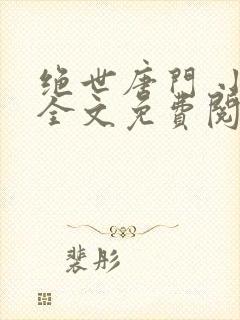 绝世唐門小
全文免費閱
裴彤